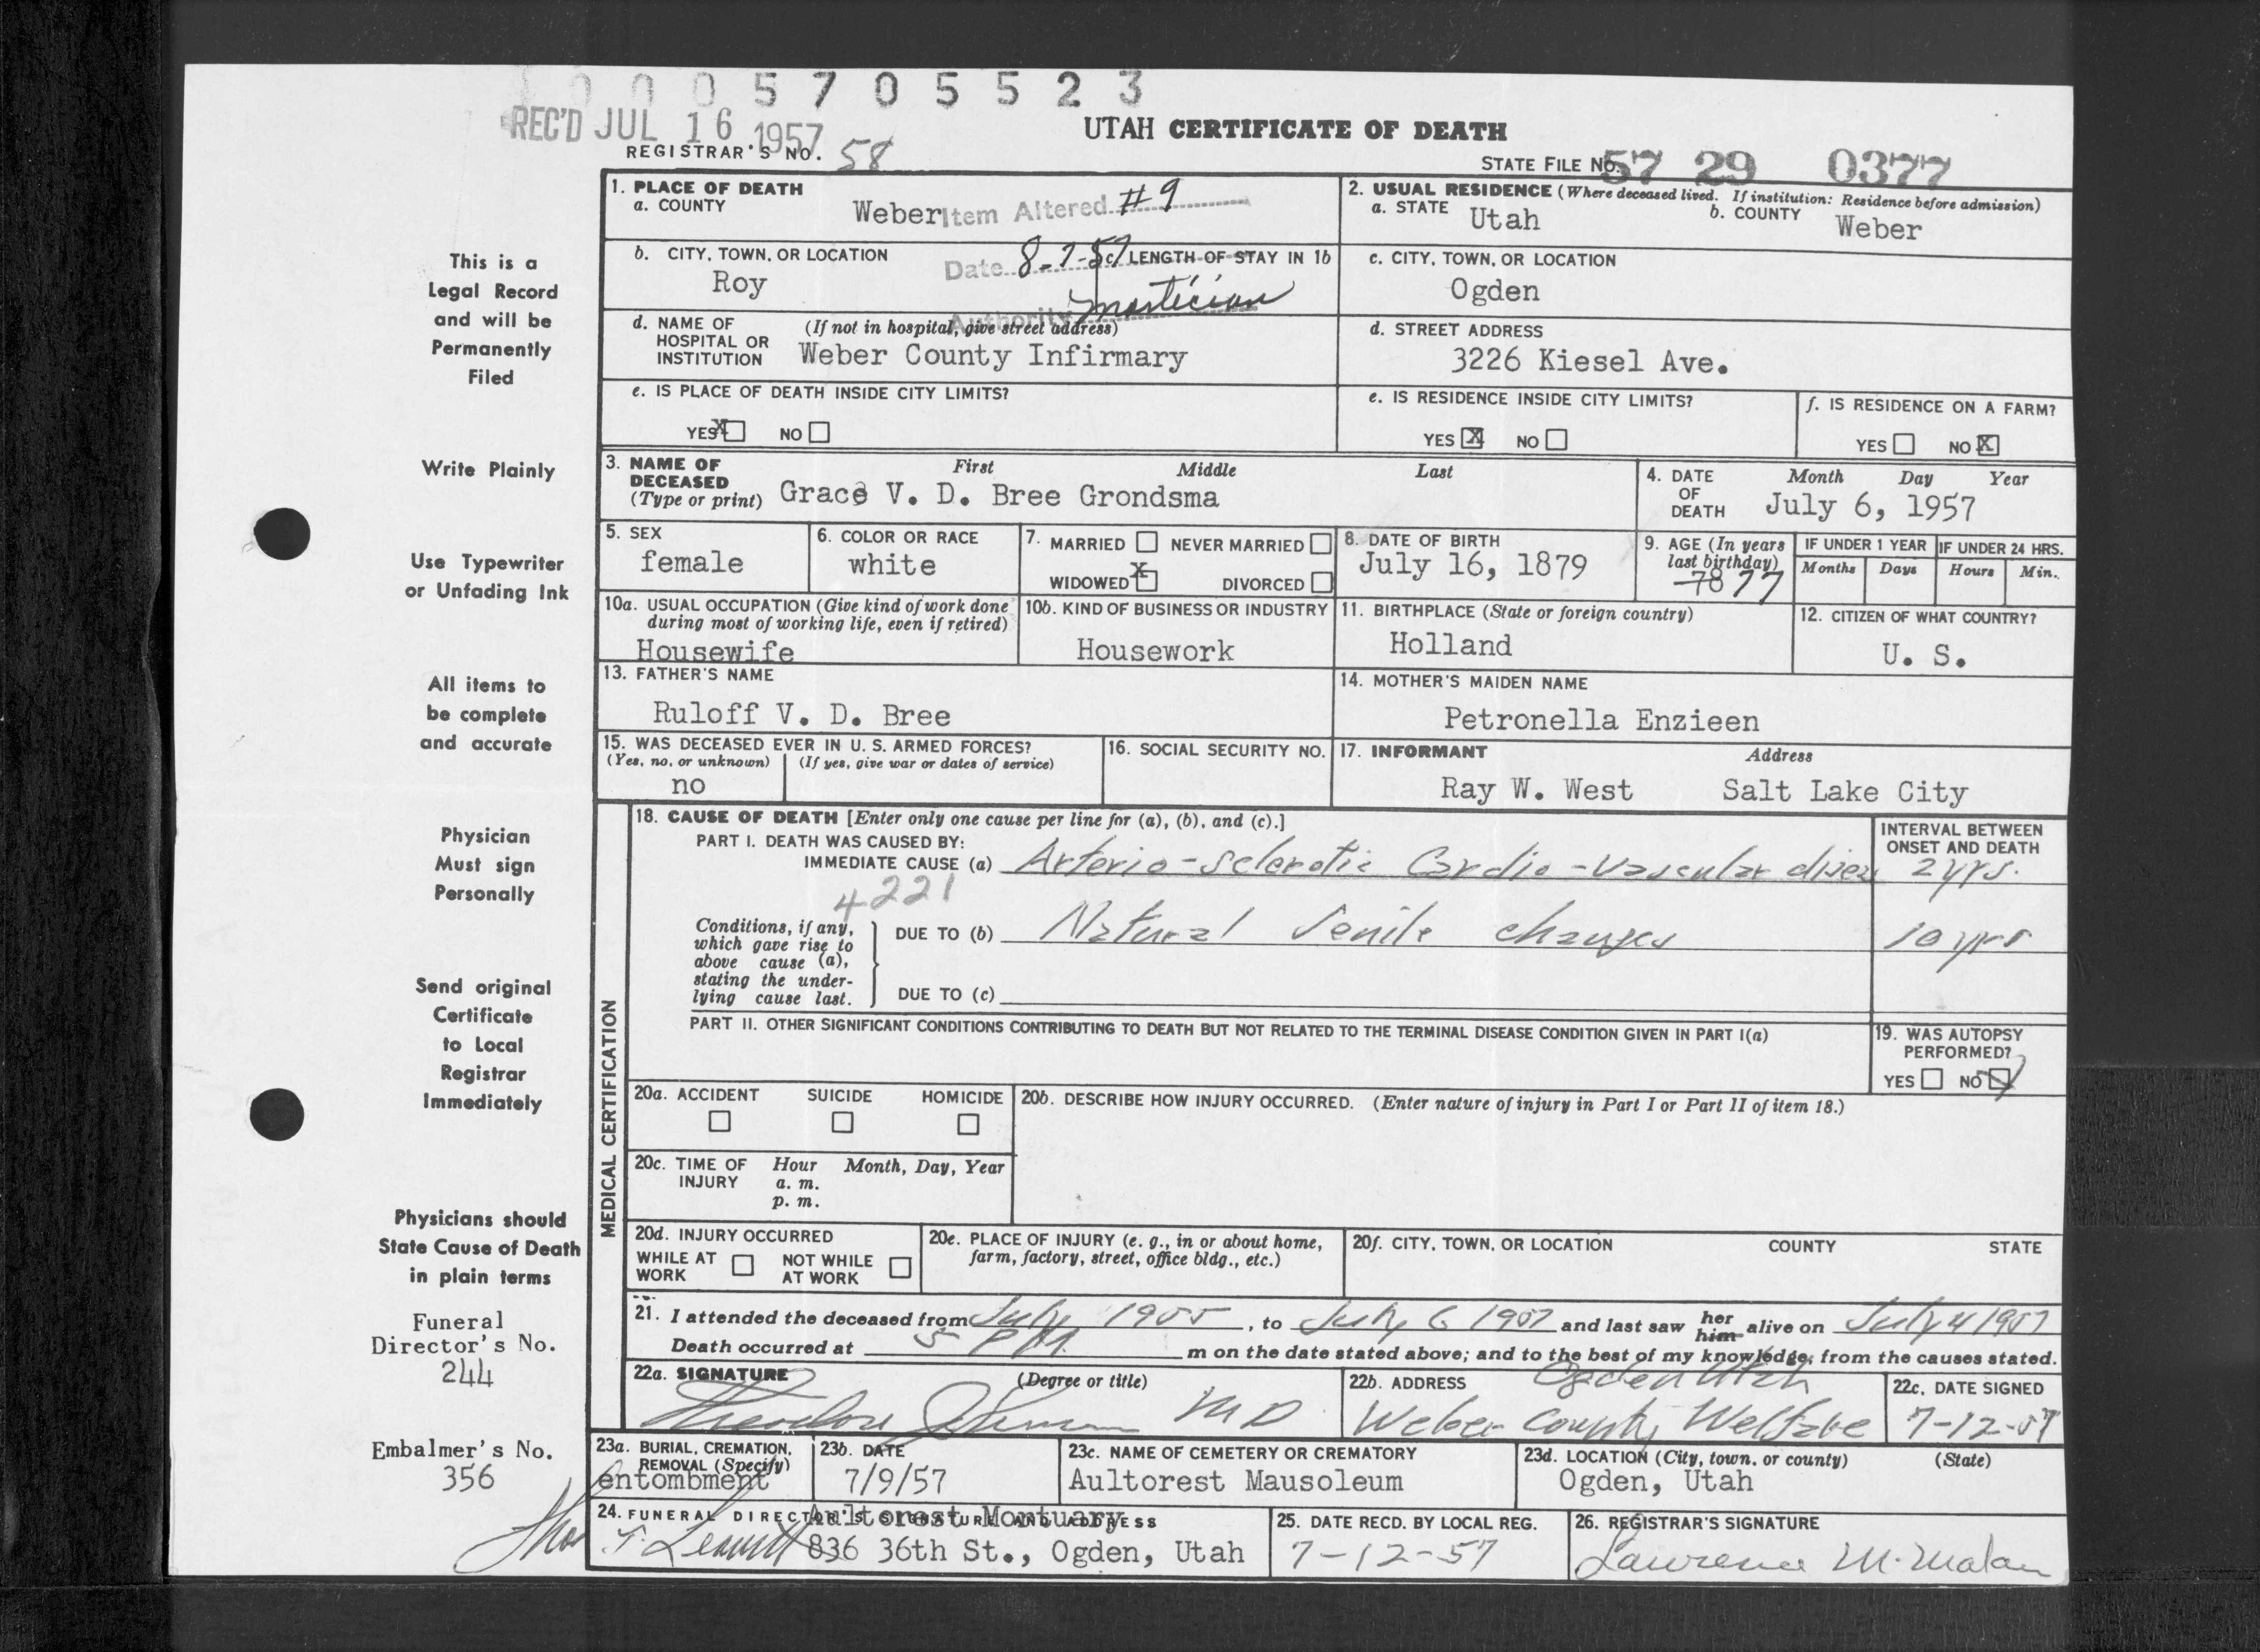 0005705523
REC'D JUL 16 1957
UTAH CERTIFICATE OF DEATH
REGISTRAR'S NO. 58
STATE FILE NO. 57 29 0377
1. PLACE OF DEATH
a. COUNTY Weber
Item Altered #9
2. USUAL RESIDENCE (Where deceased lived. If institution: Residence before admission)
a. STATE Utah b. COUNTY Weber
b. CITY, TOWN, OR LOCATION Roy
Date 8-7-57
c. LENGTH OF STAY IN 1b
Authority mortician
c. CITY, TOWN, OR LOCATION
Ogden
d. NAME OF HOSPITAL OR INSTITUTION (If not in hospital, give street address)
Weber County Infirmary
d. STREET ADDRESS
3226 Kiesel Ave.
e. IS PLACE OF DEATH INSIDE CITY LIMITS?
YES X NO
e. IS RESIDENCE INSIDE CITY LIMITS?
YES X NO
f. IS RESIDENCE ON A FARM?
YES NO X
3. NAME OF DECEASED (Type or print) First Middle Last
Grace V. D. Bree Grondsma
4. DATE OF DEATH Month Day Year
July 6, 1957
5. SEX
female
6. COLOR OR RACE
white
7. MARRIED NEVER MARRIED
WIDOWED X DIVORCED
8. DATE OF BIRTH
July 16, 1879
9. AGE (In years last birthday)
78 77
IF UNDER 1 YEAR
Months Days
IF UNDER 24 HRS.
Hours Min.
10a. USUAL OCCUPATION (Give kind of work done during most of working life, even if retired)
Housewife
10b. KIND OF BUSINESS OR INDUSTRY
Housework
11. BIRTHPLACE (State or foreign country)
Holland
12. CITIZEN OF WHAT COUNTRY?
U. S.
13. FATHER'S NAME
Ruloff V. D. Bree
14. MOTHER'S MAIDEN NAME
Petronella Enzieen
15. WAS DECEASED EVER IN U. S. ARMED FORCES?
(Yes, no, or unknown) (If yes, give war or dates of service)
no
16. SOCIAL SECURITY NO.
17. INFORMANT Address
Ray W. West Salt Lake City
MEDICAL CERTIFICATION
18. CAUSE OF DEATH [Enter only one cause per line for (a), (b), and (c).]
INTERVAL BETWEEN ONSET AND DEATH
PART I. DEATH WAS CAUSED BY:
IMMEDIATE CAUSE (a) Arterio-sclerotic Cardio-vascular 2 yrs.
4221
Conditions, if any, which gave rise to above cause (a), stating the underlying cause last.
DUE TO (b) Natural senile changes 10 yrs
DUE TO (c)
PART II. OTHER SIGNIFICANT CONDITIONS CONTRIBUTING TO DEATH BUT NOT RELATED TO THE TERMINAL DISEASE CONDITION GIVEN IN PART I(a)
19. WAS AUTOPSY PERFORMED?
YES NO
20a. ACCIDENT SUICIDE HOMICIDE
20b. DESCRIBE HOW INJURY OCCURRED. (Enter nature of injury in Part I or Part II of item 18.)
20c. TIME OF INJURY Hour Month, Day, Year
a. m.
p. m.
20d. INJURY OCCURRED
WHILE AT WORK NOT WHILE AT WORK
20e. PLACE OF INJURY (e. g., in or about home, farm, factory, street, office bldg., etc.)
20f. CITY, TOWN, OR LOCATION COUNTY STATE
21. I attended the deceased from July 1955, to July 6 1957 and last saw her him alive on July 4 1957
Death occurred at 5 PM. m on the date stated above; and to the best of my knowledge, from the causes stated.
22a. SIGNATURE (Degree or title)
Theodore MD
22b. ADDRESS Ogden Utah
Weber County Welfare
22c. DATE SIGNED
7-12-57
23a. BURIAL, CREMATION, REMOVAL (Specify)
entombment
23b. DATE
7/9/57
23c. NAME OF CEMETERY OR CREMATORY
Aultorest Mausoleum
23d. LOCATION (City, town, or county) (State)
Ogden, Utah
24. FUNERAL DIRECTOR'S SIGNATURE AND ADDRESS
Aultorest Mortuary
Thos F. Leavitt 836 36th St., Ogden, Utah
25. DATE RECD. BY LOCAL REG.
7-12-57
26. REGISTRAR'S SIGNATURE
Lawrence M. Malan
This is a
Legal Record
and will be
Permanently
Filed
Write Plainly
Use Typewriter
or Unfading Ink
All items to
be complete
and accurate
Physician
Must sign
Personally
Send original
Certificate
to Local
Registrar
Immediately
Physicians should
State Cause of Death
in plain terms
Funeral
Director's No.
244
Embalmer's No.
356